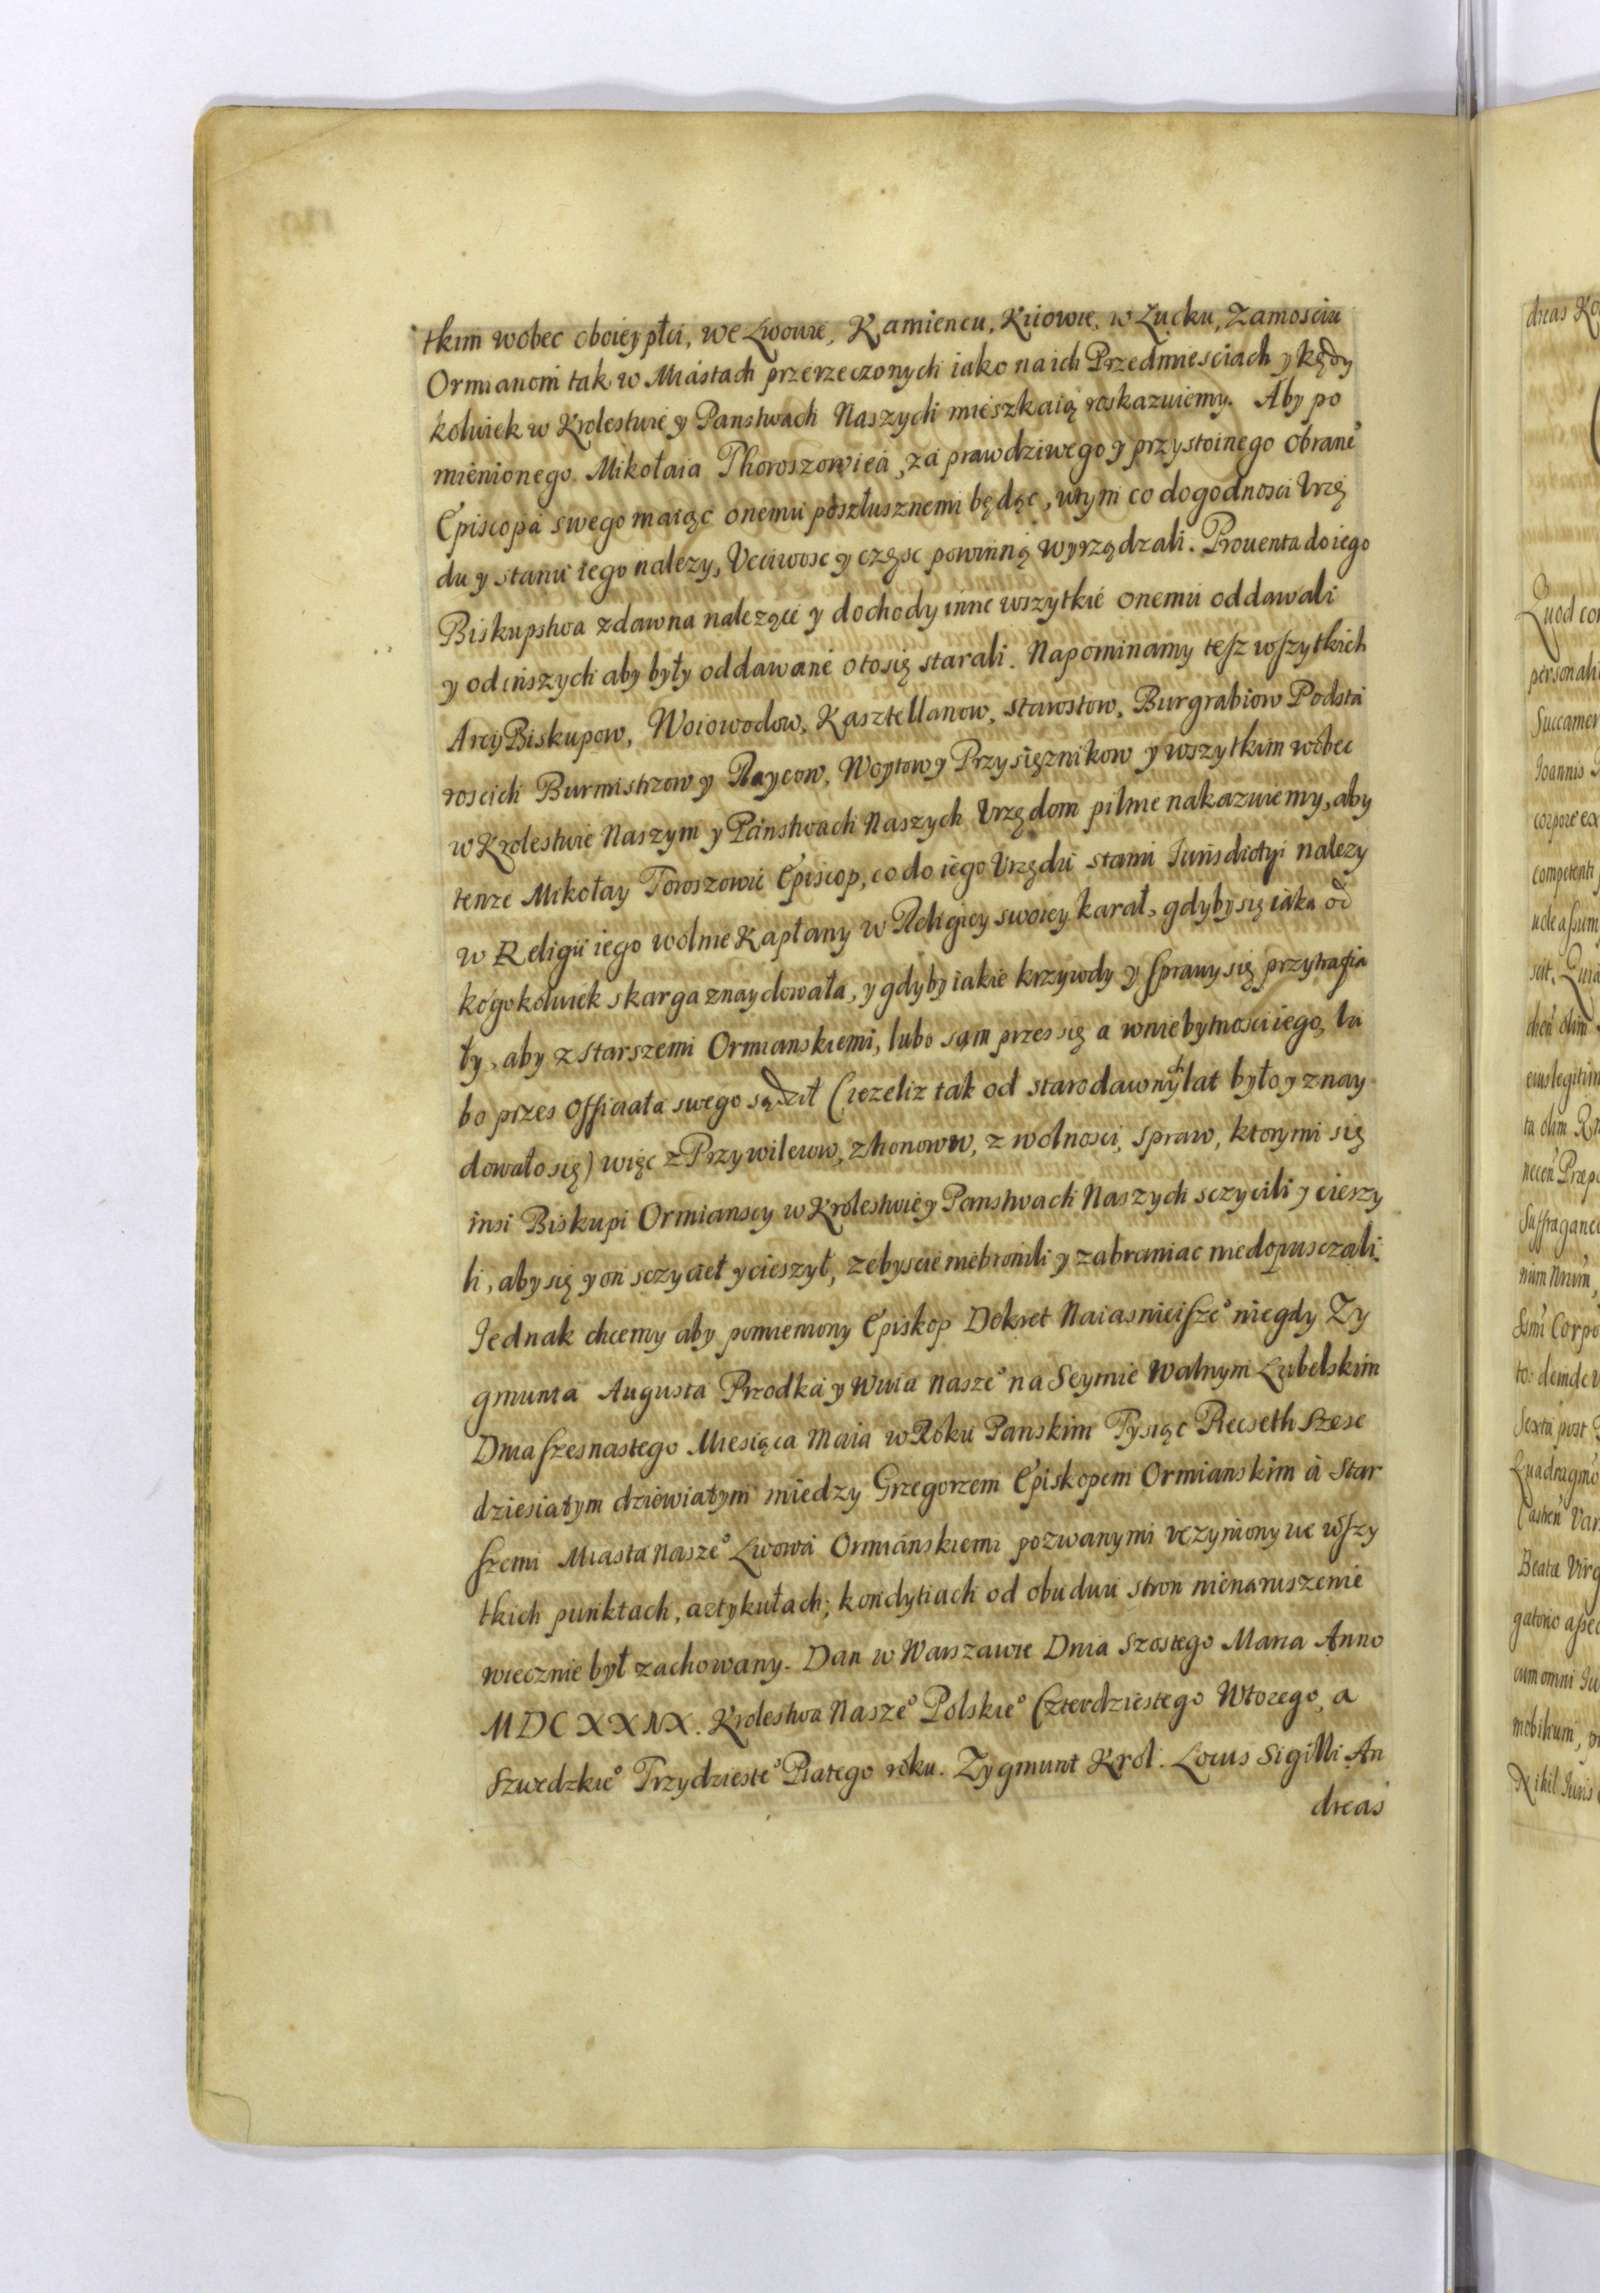 tkim wobec oboiey płci, we Lwowie, Kamiencu, Kiiowie, w Łucku, Zamosciu
Ormianom tak w Miastach przerzeczonych iako na ich Przedmiesciach y kędy
kolwiek w Krolestwie y Panstwach Naszych mieszkaią roskazuiemy. Aby po
mienionego Mikołaia Thoroszowica, za prawdziwego y przystoinego obrane°
Episcopa swego maiąc onemu poszłusznemi będąc, w tym co do godnosci Vrzę
du y stanu iego nalezy, Vcciwosc y częsc powinną wyrządzali. Prouenta do iego
Biskupstwa zdawna nalezące y dochody inne wszytkie onemu oddawali
y od inszych aby były oddawane oto się starali. Napominamy tesz wszytkich
ArcyBiskupow, Woiowodow, Kasztellanow, Starostow, Burgrabiow Podsta
roscich Burmistrzow y Raycow, Woytow y Przysiężnikow y wszytkim wobec
w Krolestwie Naszym y Panstwach Naszych Vrzędom pilnie nakazuiemy, aby
tenze Mikołay Toroszowic Episcop, co do iego Vrzędu stanu Iurisdictyi nalezy
w Religii iego wolnie Kapłany w Religiey swoiey karał, gdyby się iaka od
kogokolwiek skarga znaydowała, y gdyby iakie krzywdy y sprawy się przytrafia
ły, aby z starszemi Ormianskiemi, lubo sam przes się a w niebytnosci iego, lu
bo przes Officiała swego sądził (iezeliz tak od starodawnych lat było y znay
dowało się) więc z Przywilewow, z honorow, z wolnosci, spraw, ktorymi się
insi Biskupi Ormianscy w Krolestwie y Panstwach Naszych sczycili y cieszy
li, aby się y on sczyciel y cieszył, zebyscie niebronili y zabraniac niedopusczali.
Jednak chcemy aby pomieniony Episkop Dekret Naiasnieisze° niegdy Zy
gmunta Augusta Przodka y Wuia nasze° na Seymie Walnym Lubelskim
Dnia szesnastego Miesiąca Maia w Roku Panskim Tysiąc Piecseth szesc
dziesiatym dziewiatym miedzy Grzegorzem Episkopem Ormianskim a Star
szemi Miasta nasze° Lwowa Ormianskiemi pozwanymi vczyniony we wszy
tkich punktach, artykułach, kondytiach od obudwu stron nienaruszenie
wiecznie był zachowany. Dan w Warszawie Dnia szostego Marca Anno
MDCXXXIX. Krolestwa Nasze° Polskie° Czterdziestego Wtorego, a
Szwedzkie° Trzydzieste° Piatego roku. Zygmunt Krol. Locus Sigilli An
dreas